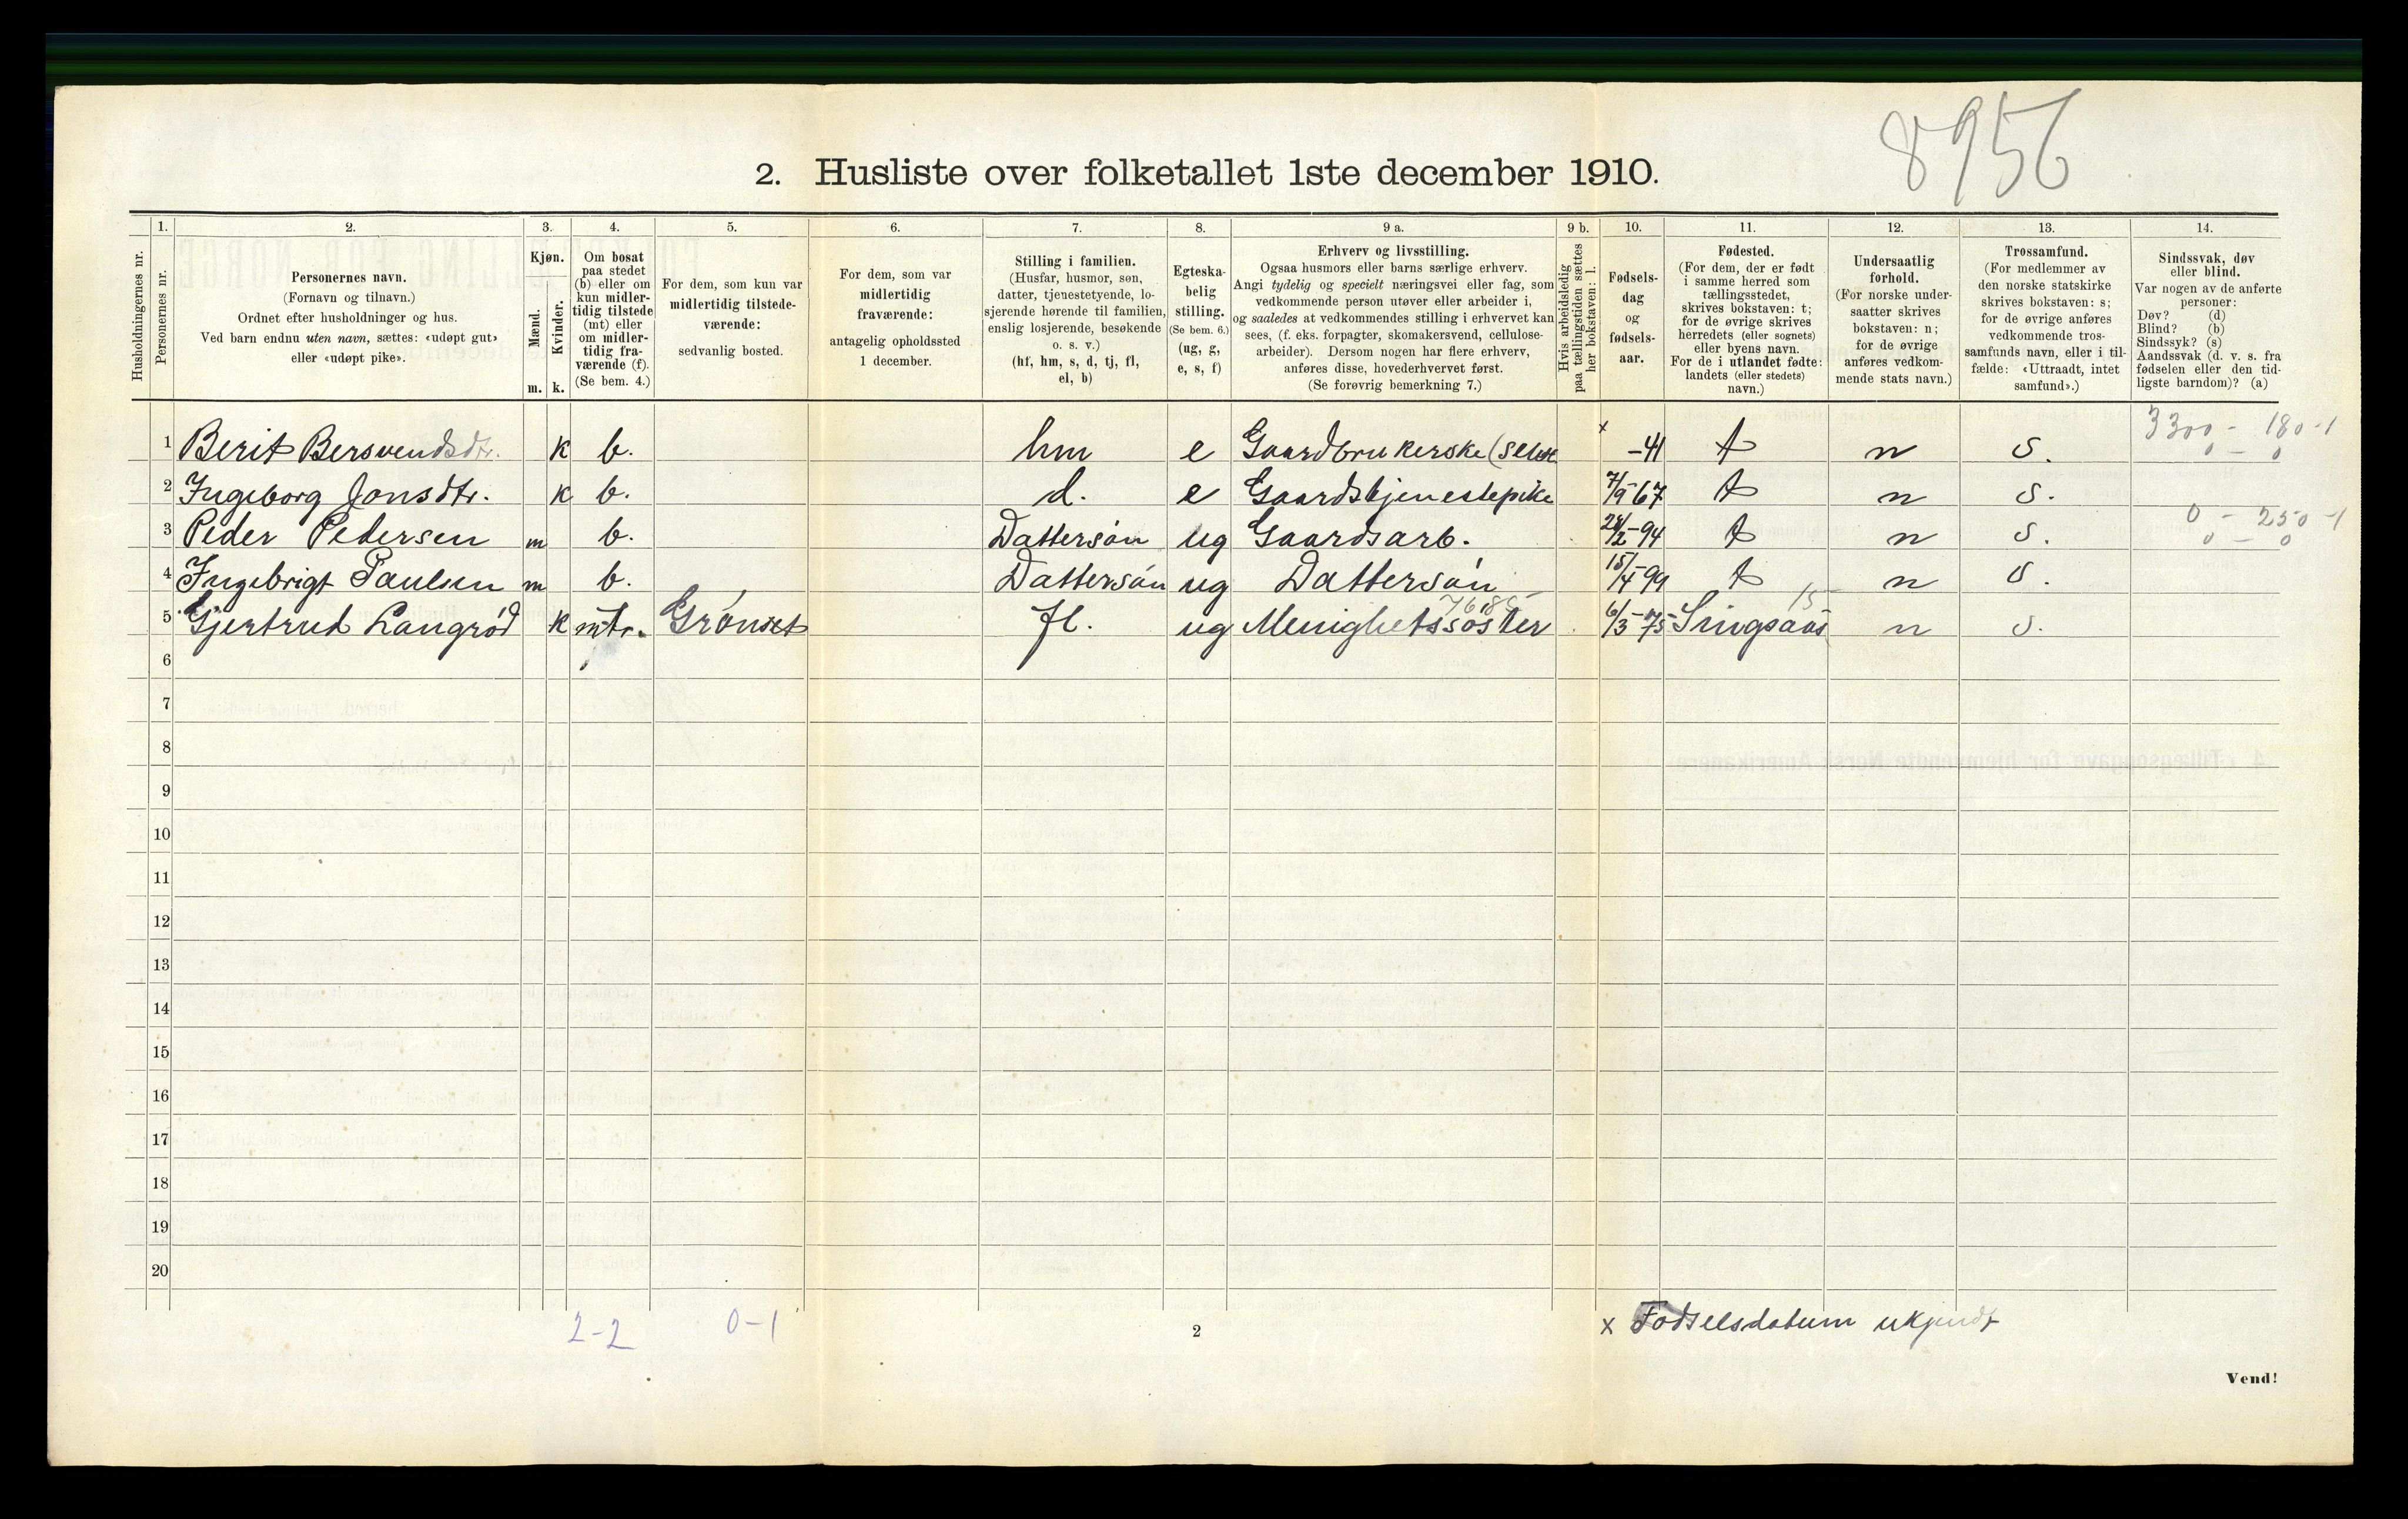 8956
2. Husliste over folketallet 1ste december 1910.
Husholdningernes nr.
1. Personernes nr.
2. Personernes navn.
(Fornavn og tilnavn.)
Ordnet efter husholdninger og hus.
Ved barn endnu uten navn, sættes: «udøpt gut»
eller «udøpt pike».
3. Kjøn.
Mænd. Kvinder.
m. k.
4. Om bosat
paa stedet
(b) eller om
kun midler-
tidig tilstede
(mt) eller
om midler-
tidig fra-
værende (f).
(Se bem. 4.)
5. For dem, som kun var
midlertidig tilstede-
værende:
sedvanlig bosted.
6. For dem, som var
midlertidig
fraværende:
antagelig opholdssted
1 december.
7. Stilling i familien.
(Husfar, husmor, søn,
datter, tjenestetyende, lo-
sjerende hørende til familien,
enslig losjerende, besøkende
o. s. v.)
(hf, hm, s, d, tj, fl,
el, b)
8. Egteska-
belig
stilling.
(Se bem. 6.)
(ug, g,
e, s, f)
9 a. Erhverv og livsstilling.
Ogsaa husmors eller barns særlige erhverv.
Angi tydelig og specielt næringsvei eller fag, som
vedkommende person utøver eller arbeider i,
og saaledes at vedkommendes stilling i erhvervet kan
sees, (f. eks. forpagter, skomakersvend, cellulose-
arbeider). Dersom nogen har flere erhverv,
anføres disse, hovederhvervet først.
(Se forøvrig bemerkning 7.)
9 b. Hvis arbeidsledig
paa tællingstiden sættes
her bokstaven: l.
10. Fødsels-
dag
og
fødsels-
aar.
11. Fødested.
(For dem, der er født
i samme herred som
tællingsstedet,
skrives bokstaven: t;
for de øvrige skrives
herredets (eller sognets)
eller byens navn.
For de i utlandet fødte:
landets (eller stedets)
navn.)
12. Undersaatlig
forhold.
(For norske under-
saatter skrives
bokstaven: n;
for de øvrige
anføres vedkom-
mende stats navn.)
13. Trossamfund.
(For medlemmer av
den norske statskirke
skrives bokstaven: s;
for de øvrige anføres
vedkommende tros-
samfunds navn, eller i til-
fælde: «Uttraadt, intet
samfund».)
14. Sindssvak, døv
eller blind.
Var nogen av de anførte
personer:
Døv? (d)
Blind? (b)
Sindssyk? (s)
Aandssvak (d. v. s. fra
fødselen eller den tid-
ligste barndom)? (a)
3300 - 180-1
1 Berit Bersvendsdtr. k b. hm e Gaardbrukerske (selvst x -41 t n s. 0 - 0
2 Ingeborg Jonsdtr. k b. d. e Gaardstjenestepike 7/9-67 t n s.
0 - 250-1
3 Peder Pedersen m b. Dattersøn ug Gaardsarb. 28/2-94 t n s. 0 - 0
4 Ingebrigt Paulsen m b. Dattersøn ug Dattersøn 15/4-99 t n s.
7685 15
5 Gjertrud Langrød k mt. Grønset fl. ug Menighetssøster 6/3-75 Singsaas n s.
6
7
8
9
10
11
12
13
14
15
16
17
18
19
20
2-2 0-1
2
x Fødselsdatum ukjendt
Vend!